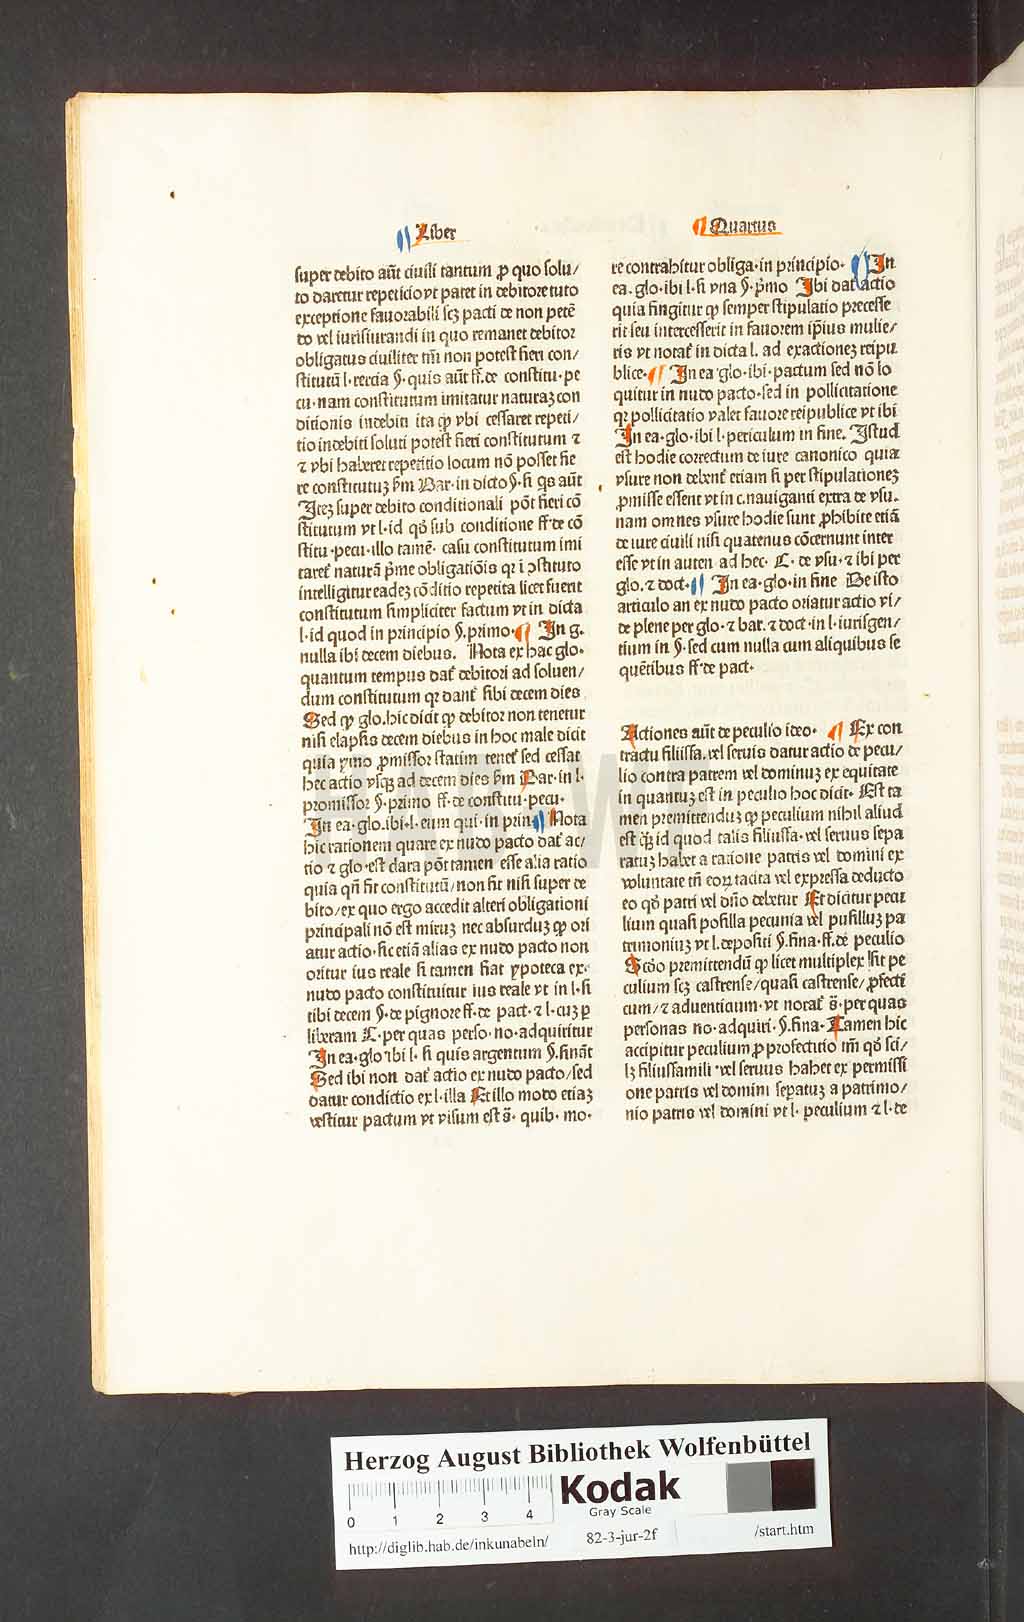 ¶ Liber
¶ Quartus
super debito aūt ciuili tantum ꝓ quo solu/
to daretur repeticio vt patet in debitore tuto
exceptione fauorabili scꝫ pacti de non petē
do vel iurisiurandi in quo remanet debitor
obligatus ciuiliter tm̄ non potest fieri con/
stitutū l. tercia §. quis aūt ff. de constitu. pe
cu. nam constitutum imitatur naturaꝫ con
ditionis indebiti ita ꝙ vbi cessaret repeti/
tio indebiti soluti potest fieri constitutum ⁊
⁊ vbi haberet repetitio locum nō posset fie
re constitutuꝫ ẜm Bar. in dicto §. si q̄s aūt
Iteꝫ super debito conditionali pōt fieri cō
stitutum vt l. id qd̄ sub conditione ff. de cō
stitu. pecu. illo tamē. casu constitutum imi
taret̄ naturā p̄me obligatiōis qꝛ i ꝯstituto
intelligitur eadeꝫ cōditio repetita licet fuerit
constitutum simpliciter factum vt in dicta
l. id quod in principio §. primo. ¶ In g.
nulla ibi decem diebus. Nota ex hac glo.
quantum tempus dat̄ debitori ad soluen/
dum constitutum qꝛ dant̄ sibi decem dies
Sed ꝙ glo. hic dicit ꝙ debitor non tenetur
nisi elapsis decem diebus in hoc male dicit
quia ymo ꝓmissor statim tenet̄ sed cessat
hec actio vsqꝫ ad decem dies ẜm Bar. in l.
promissor §. primo ff. de constitu. pecu.
In ea. glo. ibi. l. cum qui. in prin. ¶ Nota
hic rationem quare ex nudo pacto dat̄ ac/
tio ⁊ glo. est data pōt tamen esse alia ratio
quia qn̄ fit constitutū/ non fit nisi super de
bito/ ex quo ergo accedit alteri obligationi
principali nō est miruꝫ nec absurduꝫ ꝙ ori
atur actio. sic etiā alias ex nudo pacto non
oritur ius reale si tamen fiat ypoteca ex.
nudo pacto constituitur ius reale vt in l. si
tibi decem §. de pignore ff. de pact. ⁊ l. cuꝫ ꝑ
liberam C. per quas perso. no. adquiritur
In ea. glo ibi l. si quis argentum §. fināt
Sed ibi non dat̄ actio ex nudo pacto/ sed
datur condictio ex l. illa Et illo modo etiaꝫ
vestitur pactum vt visum est s̄. quib. mo.
re contrahitur obliga. in principio. ¶ In
ea. glo. ibi l. si vna §. p̄mo Ibi dat̄ actio
quia fingitur ꝙ semper stipulatio precesse
rit seu intercesserit in fauorem ip̄ius mulie/
ris vt notat̄ in dicta l. ad exactioneꝫ reipu
blice. ¶ In ea glo. ibi. pactum sed nō lo
quitur in nudo pacto. sed in pollicitatione
qꝛ pollicitatio valet fauore reipublice vt ibi
In ea. glo. ibi l. periculum in fine. Istud
est hodie correctum de iure canonico quia
vsure non debent̄ etiam si per stipulationeꝫ
ꝓmisse essent vt in c. nauiganti extra de vsu.
nam omnes vsure hodie sunt ꝓhibite etiā
de iure ciuili nisi quatenus cōcernunt inter
esse vt in auten ad hec. C. de vsu. ⁊ ibi per
glo. ⁊ doct. ¶ In ea. glo. in fine De isto
articulo an ex nudo pacto oriatur actio vi/
de plene per glo. ⁊ bar. ⁊ doct. in l. iurisgen/
tium in §. sed cum nulla cum aliquibus se
quētibus ff. de pact.
Actiones aūt de peculio ideo. ¶ Ex con
tractu filiifa. vel serui datur actio de pecu/
lio contra patrem vel dominuꝫ ex equitate
in quantuꝫ est in peculio hoc dicit. Est ta
men premittenduꝫ ꝙ peculium nihil aliud
est q̄ꝫ id quod talis filiusfa. vel seruus sepa
ratuꝫ habet a ratione patris vel domini ex
voluntate tn̄ eoꝝ tacita vel expressa deducto
eo qd̄ patri vel dn̄o debetur Et dicitur pecu
lium quasi posilla pecunia vel pusilluꝫ pa
trimoniuꝫ vt l. depositi §. fina. ff. de peculio
Scd̄o premittendū ꝙ licet multiplex sit pe
culium scꝫ castrense/ quasi castrense/ ꝓfecti
cium/ ⁊ aduenticium. vt notat̄ s̄. per quas
personas no. adquiri. §. fina. Tamen hic
accipitur peculium ꝓ profectitio tm̄ qd̄ sci/
lꝫ filiusfamili. vel seruus habet ex permissi
one patris vel domini sepatuꝫ a patrimo/
nio patris vel domini vt l. peculium ⁊ l. de
HAB WF
Herzog August Bibliothek Wolfenbüttel
0 1 2 3 4
Kodak
Gray Scale
http://diglib.hab.de/inkunabeln/ 82-3-jur-2f /start.htm